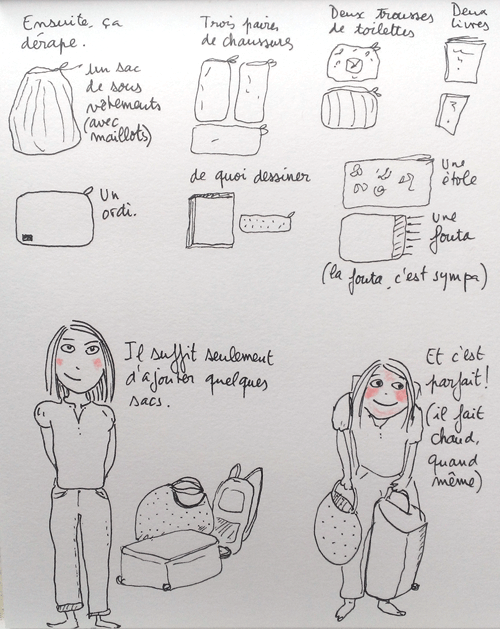 Ensuite, ça
dérape.
un sac
de sous
vêtements
(avec
maillots)
Trois paires
de chaussures
Deux trousses
de toilettes
Deux
livres
Un
ordi.
de quoi dessiner
Une
étole
une
fouta
(la fouta, c'est sympa)
Il suffit seulement
d'ajouter quelques
sacs.
Et c'est
parfait!
(il fait
chaud,
quand
même)